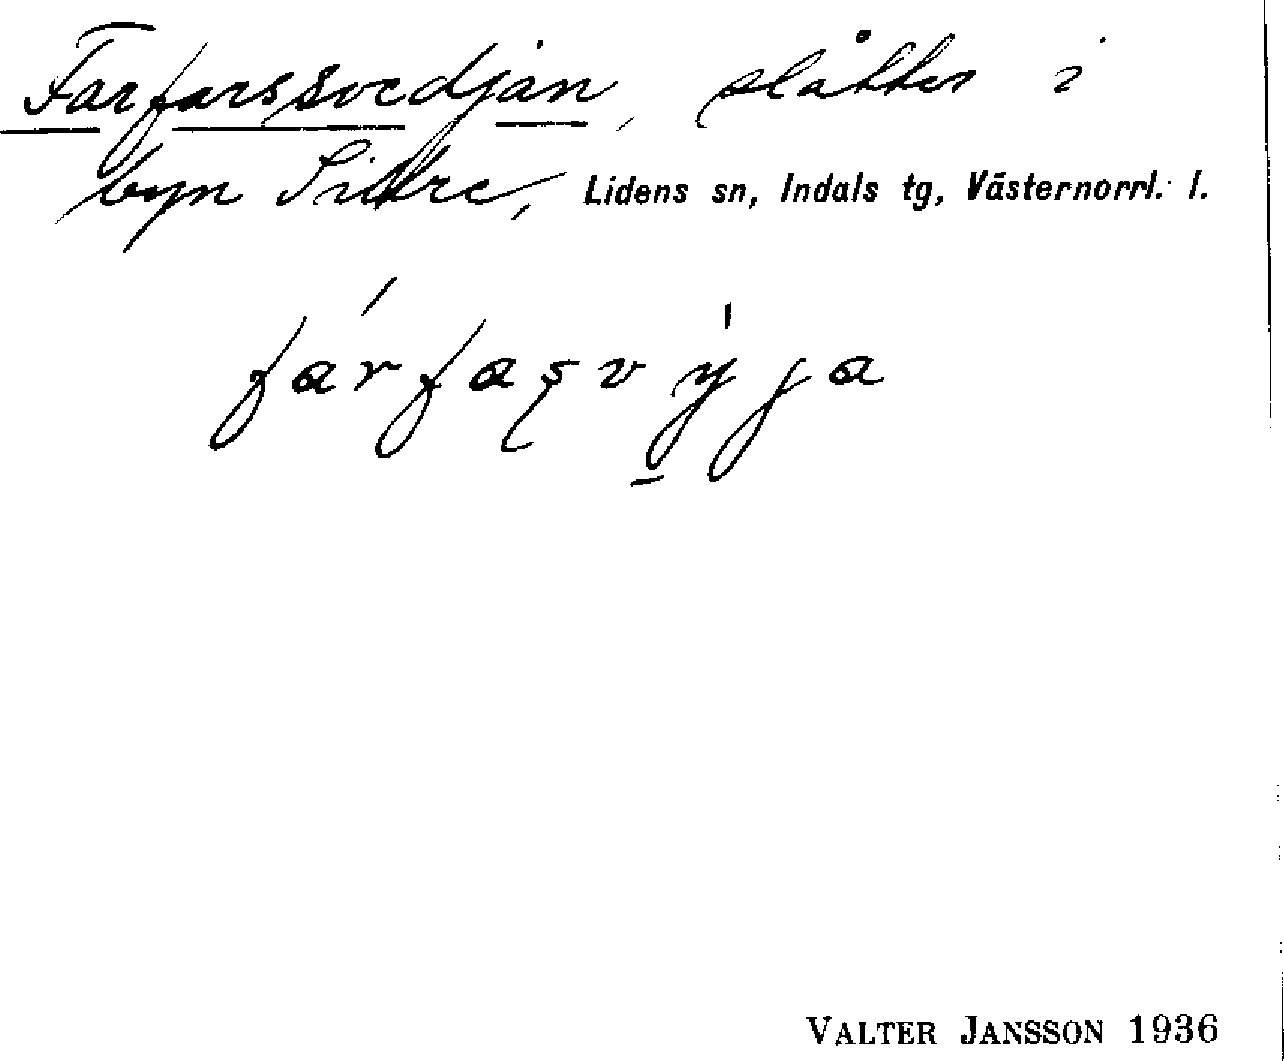 Farfarssvedjan, slåtter i
byn Sillre, Lidens sn, Indals tg, Västernorrl. l.
fárfaʂvy̱̍ja
VALTER JANSSON 1936